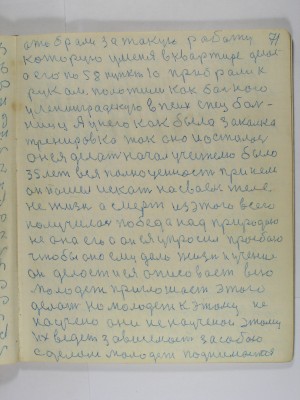 71
отобрали за такую работу
которую у меня в квартире делал
а его по 58 пункты 10 прибрали к
рукам положили как больного
у ленинградскую в псих спец боль
ницу А у него как была закалка
тренировка так оно и осталось
он ея делат начал учителю было
35 лет вся полноценност при нем
он пошел искат на своем теле
не жизн а смерт из этого всего
получилась победа над природою
не она его а он ея упросил прозбою
чтобы она ему дала жизн и учение
он делает ися описовает в его
молодеж приглошает этого
делат но молодеж к этому не
научено они не научены этому
их ведет зависимост за собою
сделом молодеж поднимается